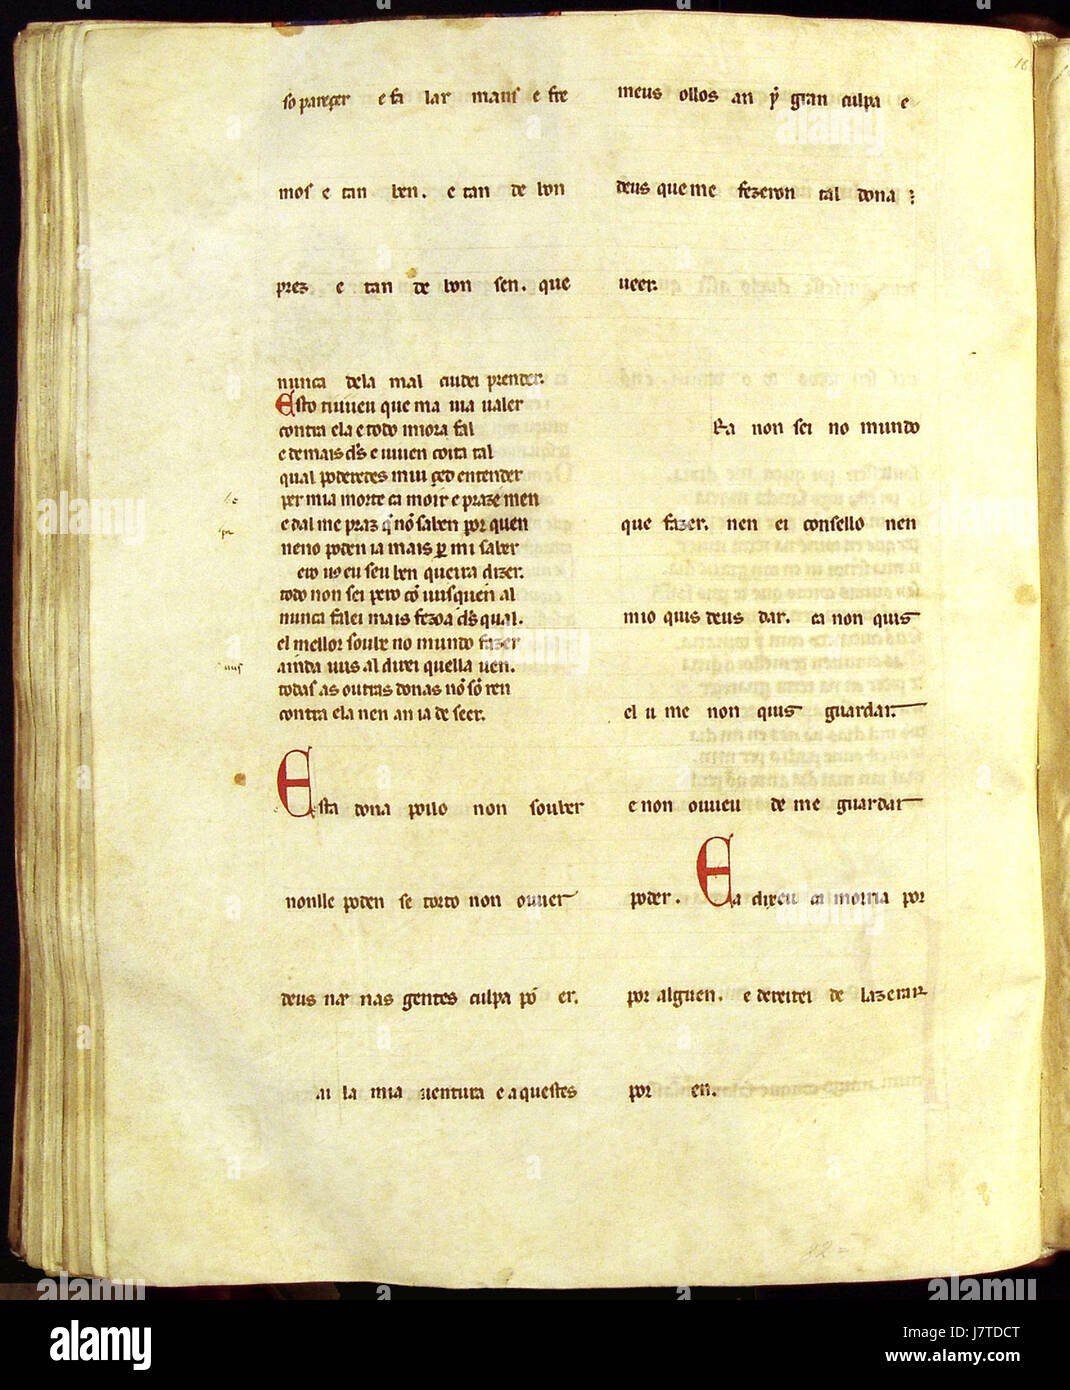 so pareçer e fa lar mans e fre
mos e tan ben. e tan de bon
prez e tan de bon sen. que
nunca dela mal cuidei prender.
Esto tiuneu que ma uia ualer
contra ela e todo miora fal
e demais d̃s e uiuen coita tal
qual poderedes mui çed entender
per mia morte ca moir e praze men
e dal me praz q̃ nõ saben por quen
neno poden ia mais p̱ mi saber
ero uos eu seu ben queira dizer.
todo non sei pero cõ uusquen al
nunca falei mais fezoa d̃s qual.
el mellor soube no mundo fazer
ainda uus al direi quella uen.
todas as outras donas nõ sõ ren
contra ela nen an ia de seer.
Esta dona poilo non souber
nonlle poden se torto non ouuer
deus nẽ nas gentes culpa põ er.
ai la mia uentura e aquestes
meus ollos an ý gran culpa e
deus que me fezeron tal dona
ueer.
Ra non sei no mundo
que fazer. nen ei consello nen
mio quis deus dar. ca non quis
el u me non quis guardar.
e non ouueu de me guardar
poder. Ca dixeu ca moiria por
por alguen. e dereitei de lazerar
por en.
be
spr
uus
16
82
alamy
Image ID: J7TDCT
www.alamy.com